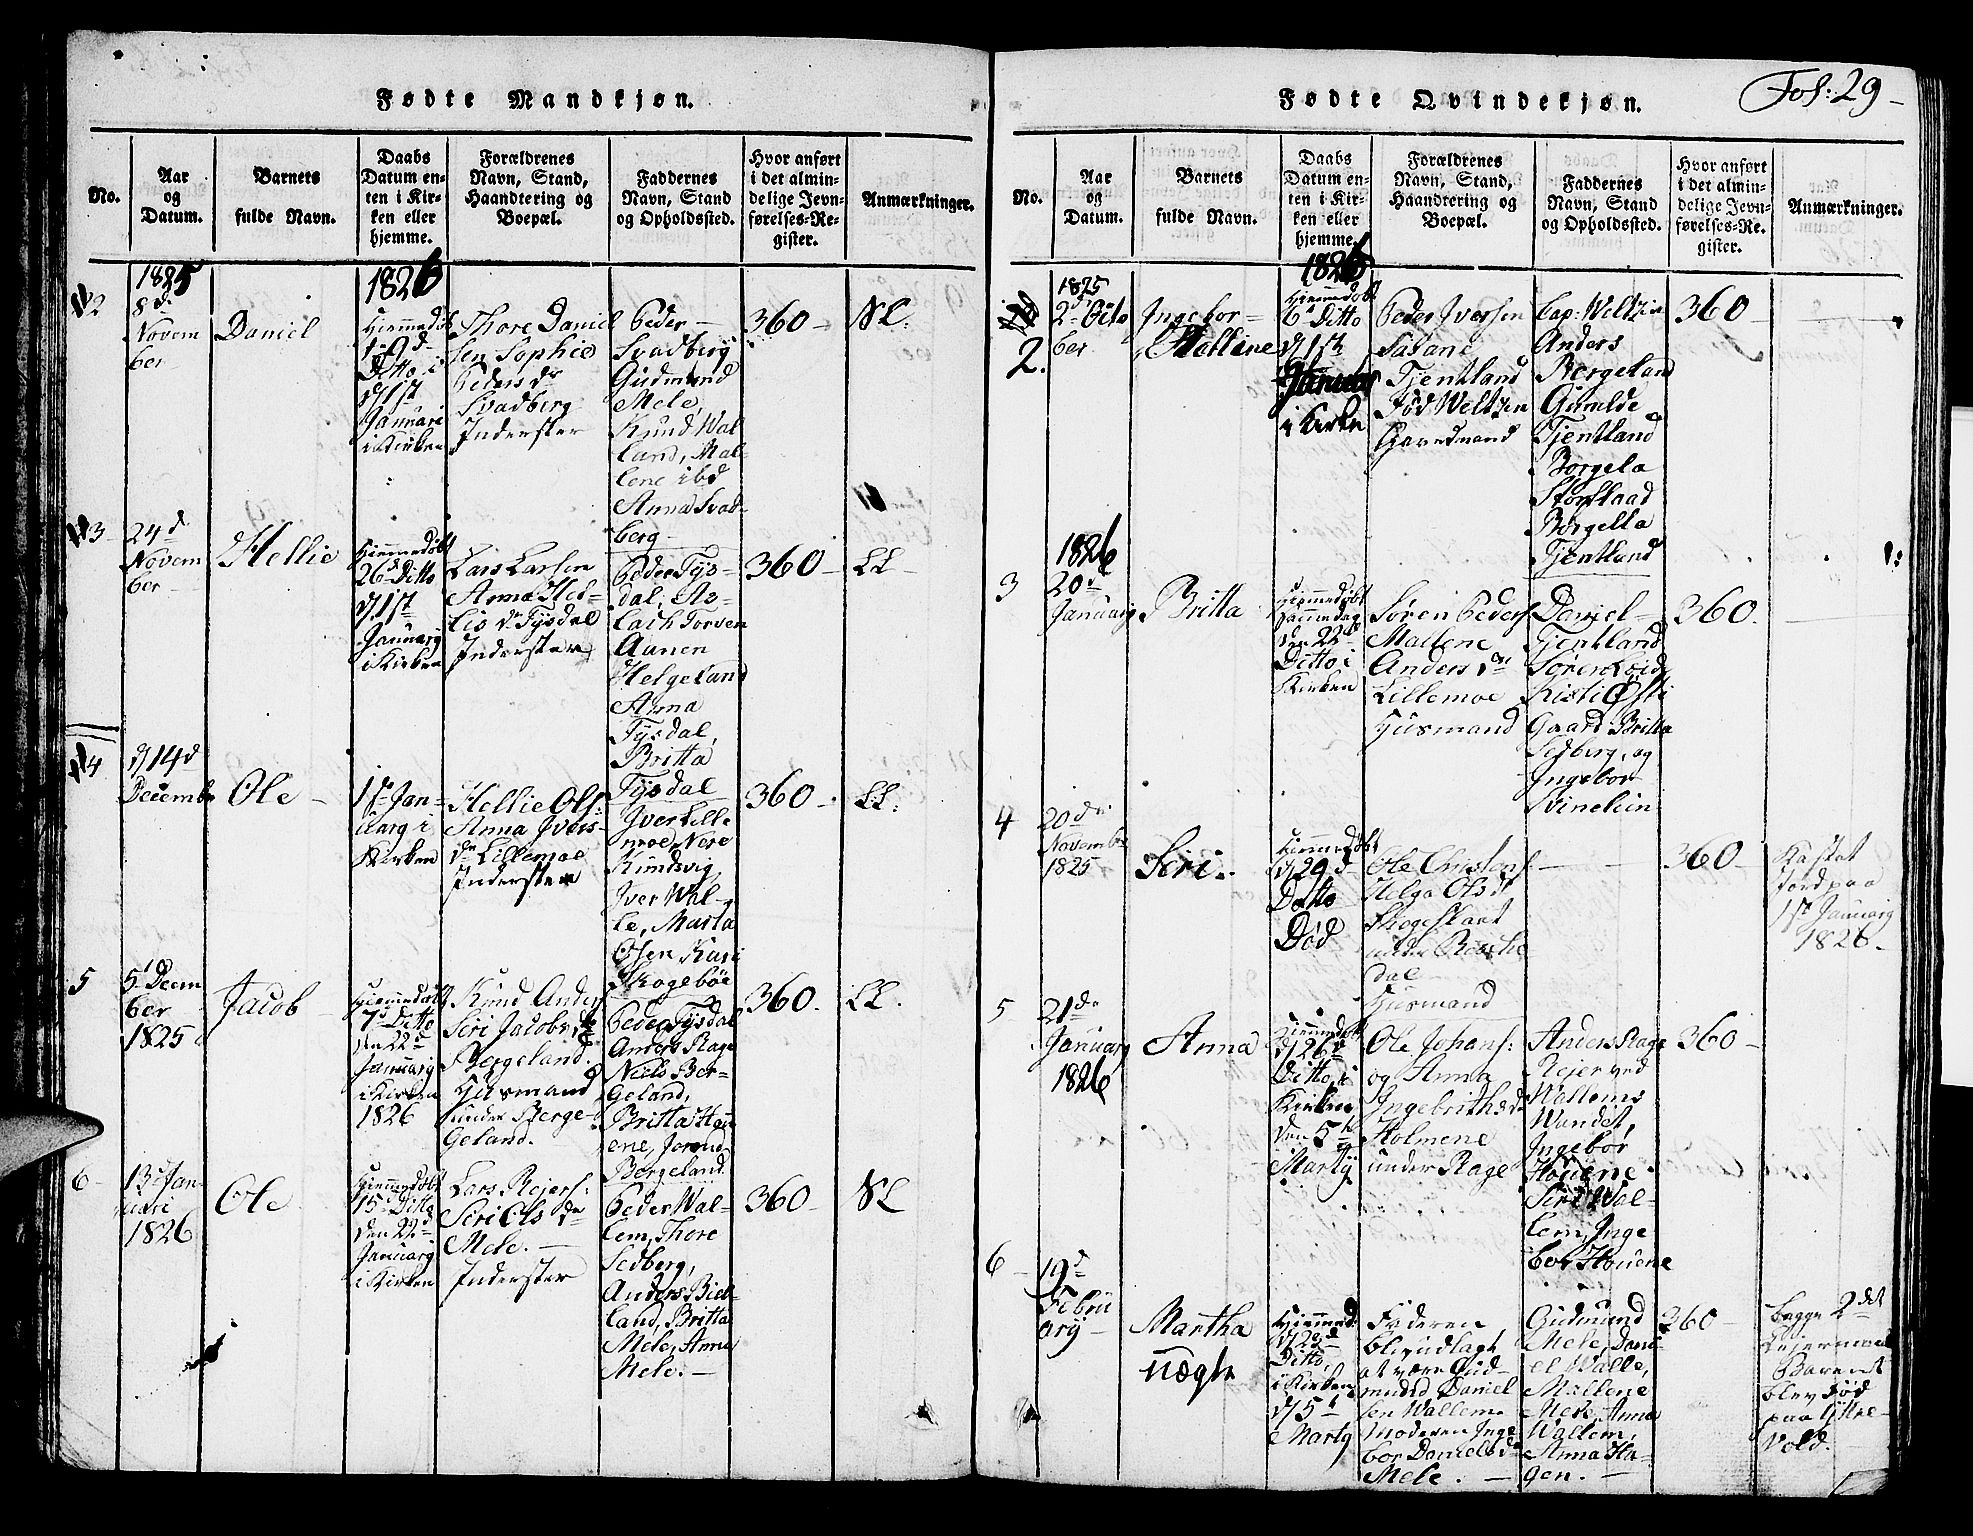 Fødte Mandkjøn.
No.
Aar
og
Datum.
Barnets
fulde Navn.
Daabs
Datum en-
ten i Kir-
ken eller
hjemme.
Forældrenes
Navn, Stand,
Haandtering og
Boepæl.
Faddernes
Navn, Stand
og Opholdssted.
Hvor anført
i det almin-
delige Jevn-
førelses-Re-
gister.
Anmærkninger.
2
1825
8d
Novem
ber
Daniel
1826
Hiemmedøbt
Ditto i
d/1st
Januari
i Kirken
Thore Daniel
sen Sophie
Peders dr
Svadberg
Inderster
Peder
Svadberg
Gudmund
Mele,
Knud Wal
land, Mal
lene ibd
Anna Svad-
berg
360
NL.
3
24d
Novem
ber
Hellie
Hiemmedøbt
26d Ditto
d/1st
Januarij
i Kirken
Lars Larsen
Anna Hel-
lis dr Tysdal
Inderster
Peder Tys-
dal, As-
lach Torven
Aunen
Helgeland
Anna
Tysdal,
Britta
Tysdal
360
LL
4
d/14d
Decembr
Ole
1st Jan-
uarij i
Kirken
Hellie Ols:
Anna Ivers-
dr Lillemoe
Inderster
Iver Lille
moe, Nere
Kundsvig,
Iver Wal-
le, Marta
Olsen Kari
Skogebøe
360
LL.
5
5 Decem
ber
1825
Jacob
Hiemmedøbt
7d Ditto
den 22d
Januarij
i Kirken
1826
Knud Anders
Siri Jacobs dr
Bergeland.
Huusmand
under Berge-
Geland.
Peder Tysdal
Anders Rage
Niels Ber-
geland,
Britta Hau
ene, Jorund
Bergeland
360.
LL.
6
13d Jan
uari
1826
Ole
Hiemmedøbt
15d Ditto
den 22d
Januarij
i Kirken
Lars Rejers:
Siri Ols dr
Mele.
Inderster
Peder Wal-
lem, Thore
Sedberg,
Anders Biel-
land, Britta
Mele, Anna
Mele.
360
NL
Fol: 29
Fødte Qvindekjøn.
No.
Aar
og
Datum.
Barnets
fulde Navn.
Daabs
Datum en-
ten i Kir-
ken eller
hjemme.
Forældrenes
Navn, Stand,
Haandtering og
Boepæl.
Faddernes
Navn, Stand
og Opholdssted.
Hvor anført
i det almin-
delige Jevn-
førelses-Re-
gister.
Anmærkninger.
2.
1825
2d Octo
ber
Ingebor
Helline
1826
Hiemmedøbt
6d Ditto
d/1st
Januar
i Kirke
Peder Iversen
Susane
Tjentland
Fød Weltzen
Gaardmand
Cap: Weltzin
Anders
Bergeland
Gunilde
Tjentland
Borgela
Storslaad
Borgella
Tjentland
360
3
1826
20d
Januarij
Britta
Hiemmedøbt
Sammedag
den 22d
Ditto i
Kirken
Søren Peders
Mallene
Anders dr
Lillemoe
Huusmand
Daniel
Tjentland
Søren Leid
Kisti Østi
Gaard Britta
Sedberg, og
Ingebor
Svinelien
360.
4
20de
Novembr
1825
Seri.
Hiemmedøbt
d/29d
Ditto
Død
Ole Christens
Helga Ols dr
Skogeslaat
under
dal
Huusmand
360
Kastet
Jord paa
1st Januarij
1826
5
21de
Januarij
1826
Anna
Hiemmedøbt
d/26d
Ditto, i
Kirken
den 5th
Martij
Ole Johans:
og Anna
Ingebrithsdr
Holmene
under Rage
Anders Rage
Rejer ved
Wallems
Wandet,
Ingebor
Houene
Siri Wal-
lem, Inge
bor Houene
360
6
19d
Febru
arij
Martha
uægte
Hiemmed
d/22d
Ditto,
i Kirken
d/5t
Martij
Faderen
bliv udlagt
at være Gud-
munds Daniel
sen Wallem
Moderen Inge
bor Daniels dr
Mele.
Gudmund
Mele, Dani
el Walle,
Mallene
Mele, Anna
Wallem,
Anna Ha-
gen.
360
begge 2det
Leiermaal
Barnet
blev død
paa
Vold.